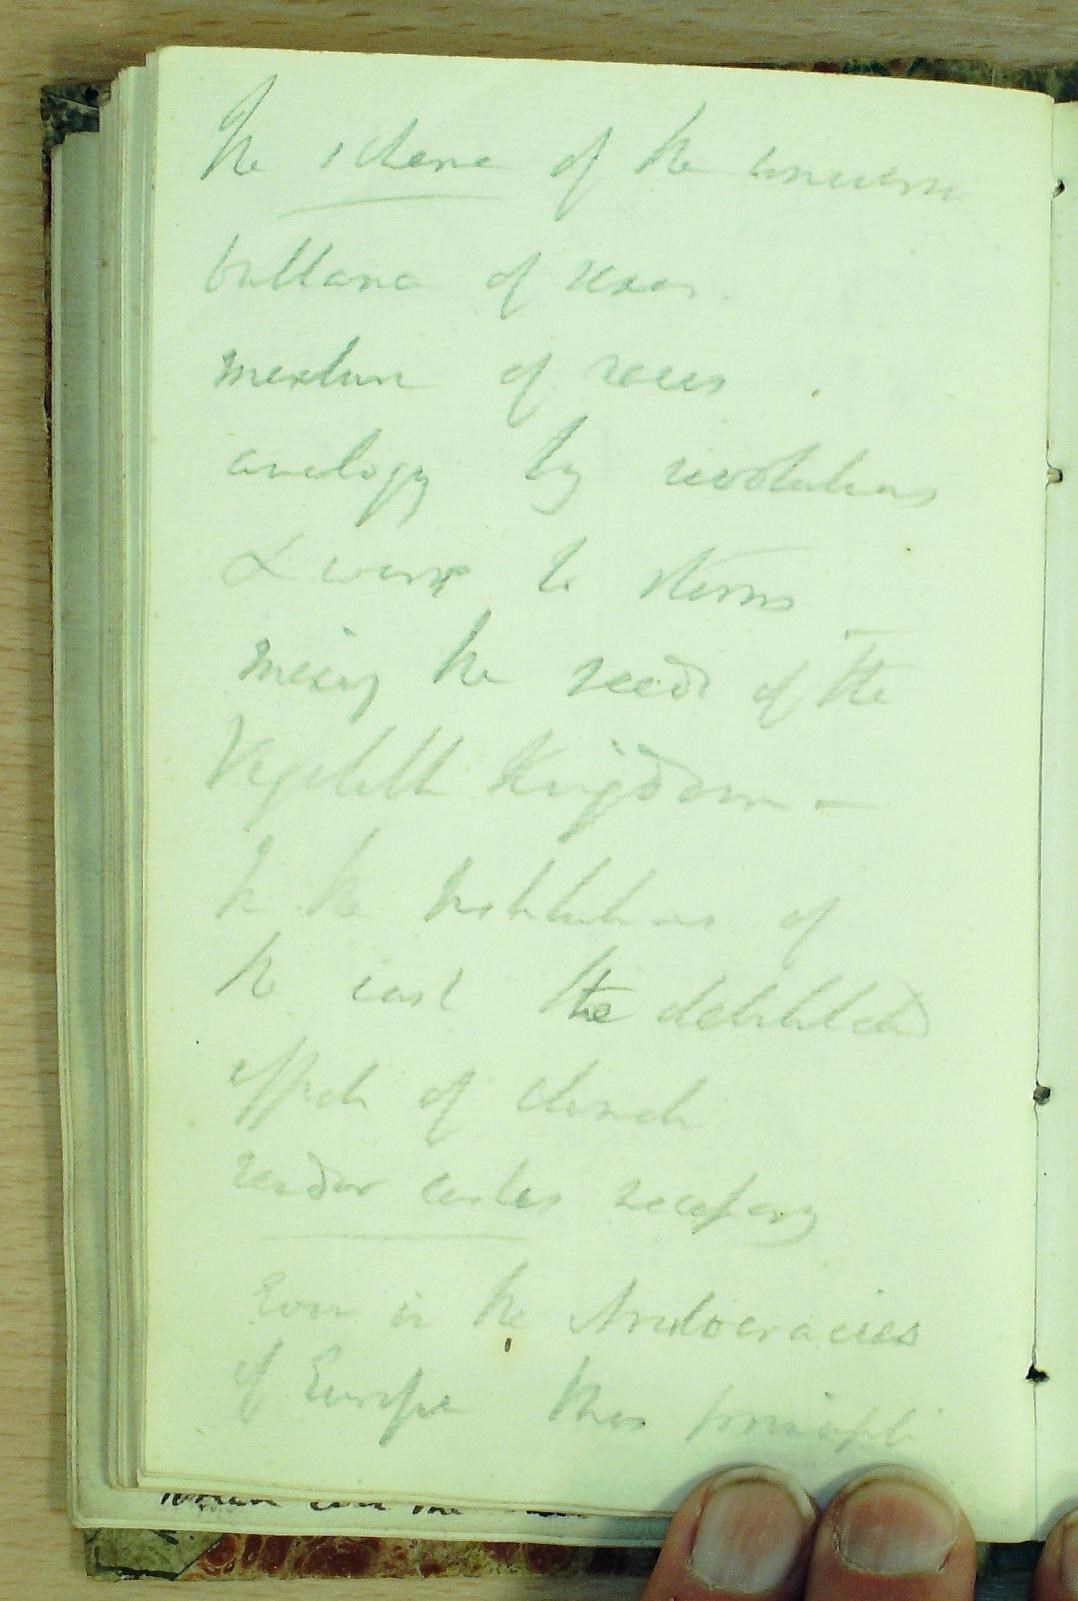 The scheme of the universe
of sexes.
mixture of races
analogy by revolutions
& wars to storms
mixing the seeds of the
Vegetable Kingdom –
In the Institutions of
the east the debilitated
effects of
render castes necessary
Even in the Aristocracies
of Europe this principle